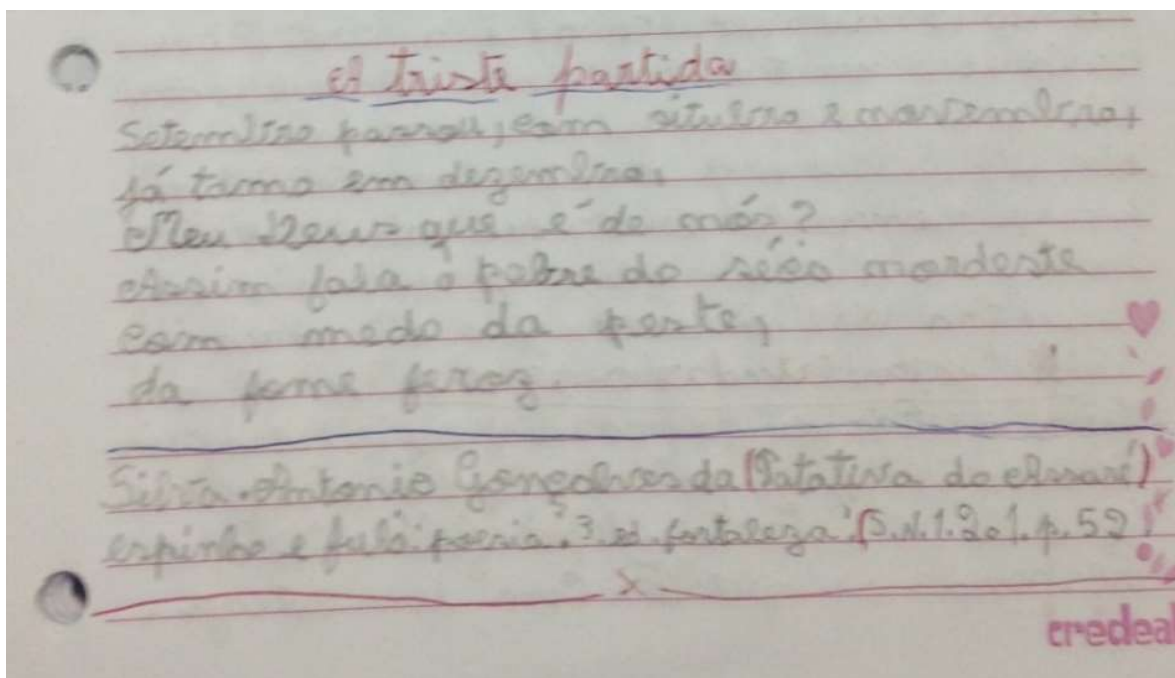 A Triste partida
Setembro passou, com oitubro e novembro,
já tamo em dezembro.
Meu Deus que é de nós?
Assim fala o pobre do sêco nordeste
com medo da peste,
da fome feroz.
Silva. Antonio Gonçalves da (Patativa do Assaré)
espinho e fulô: poesia. 3 ed. fortaleza
credeal